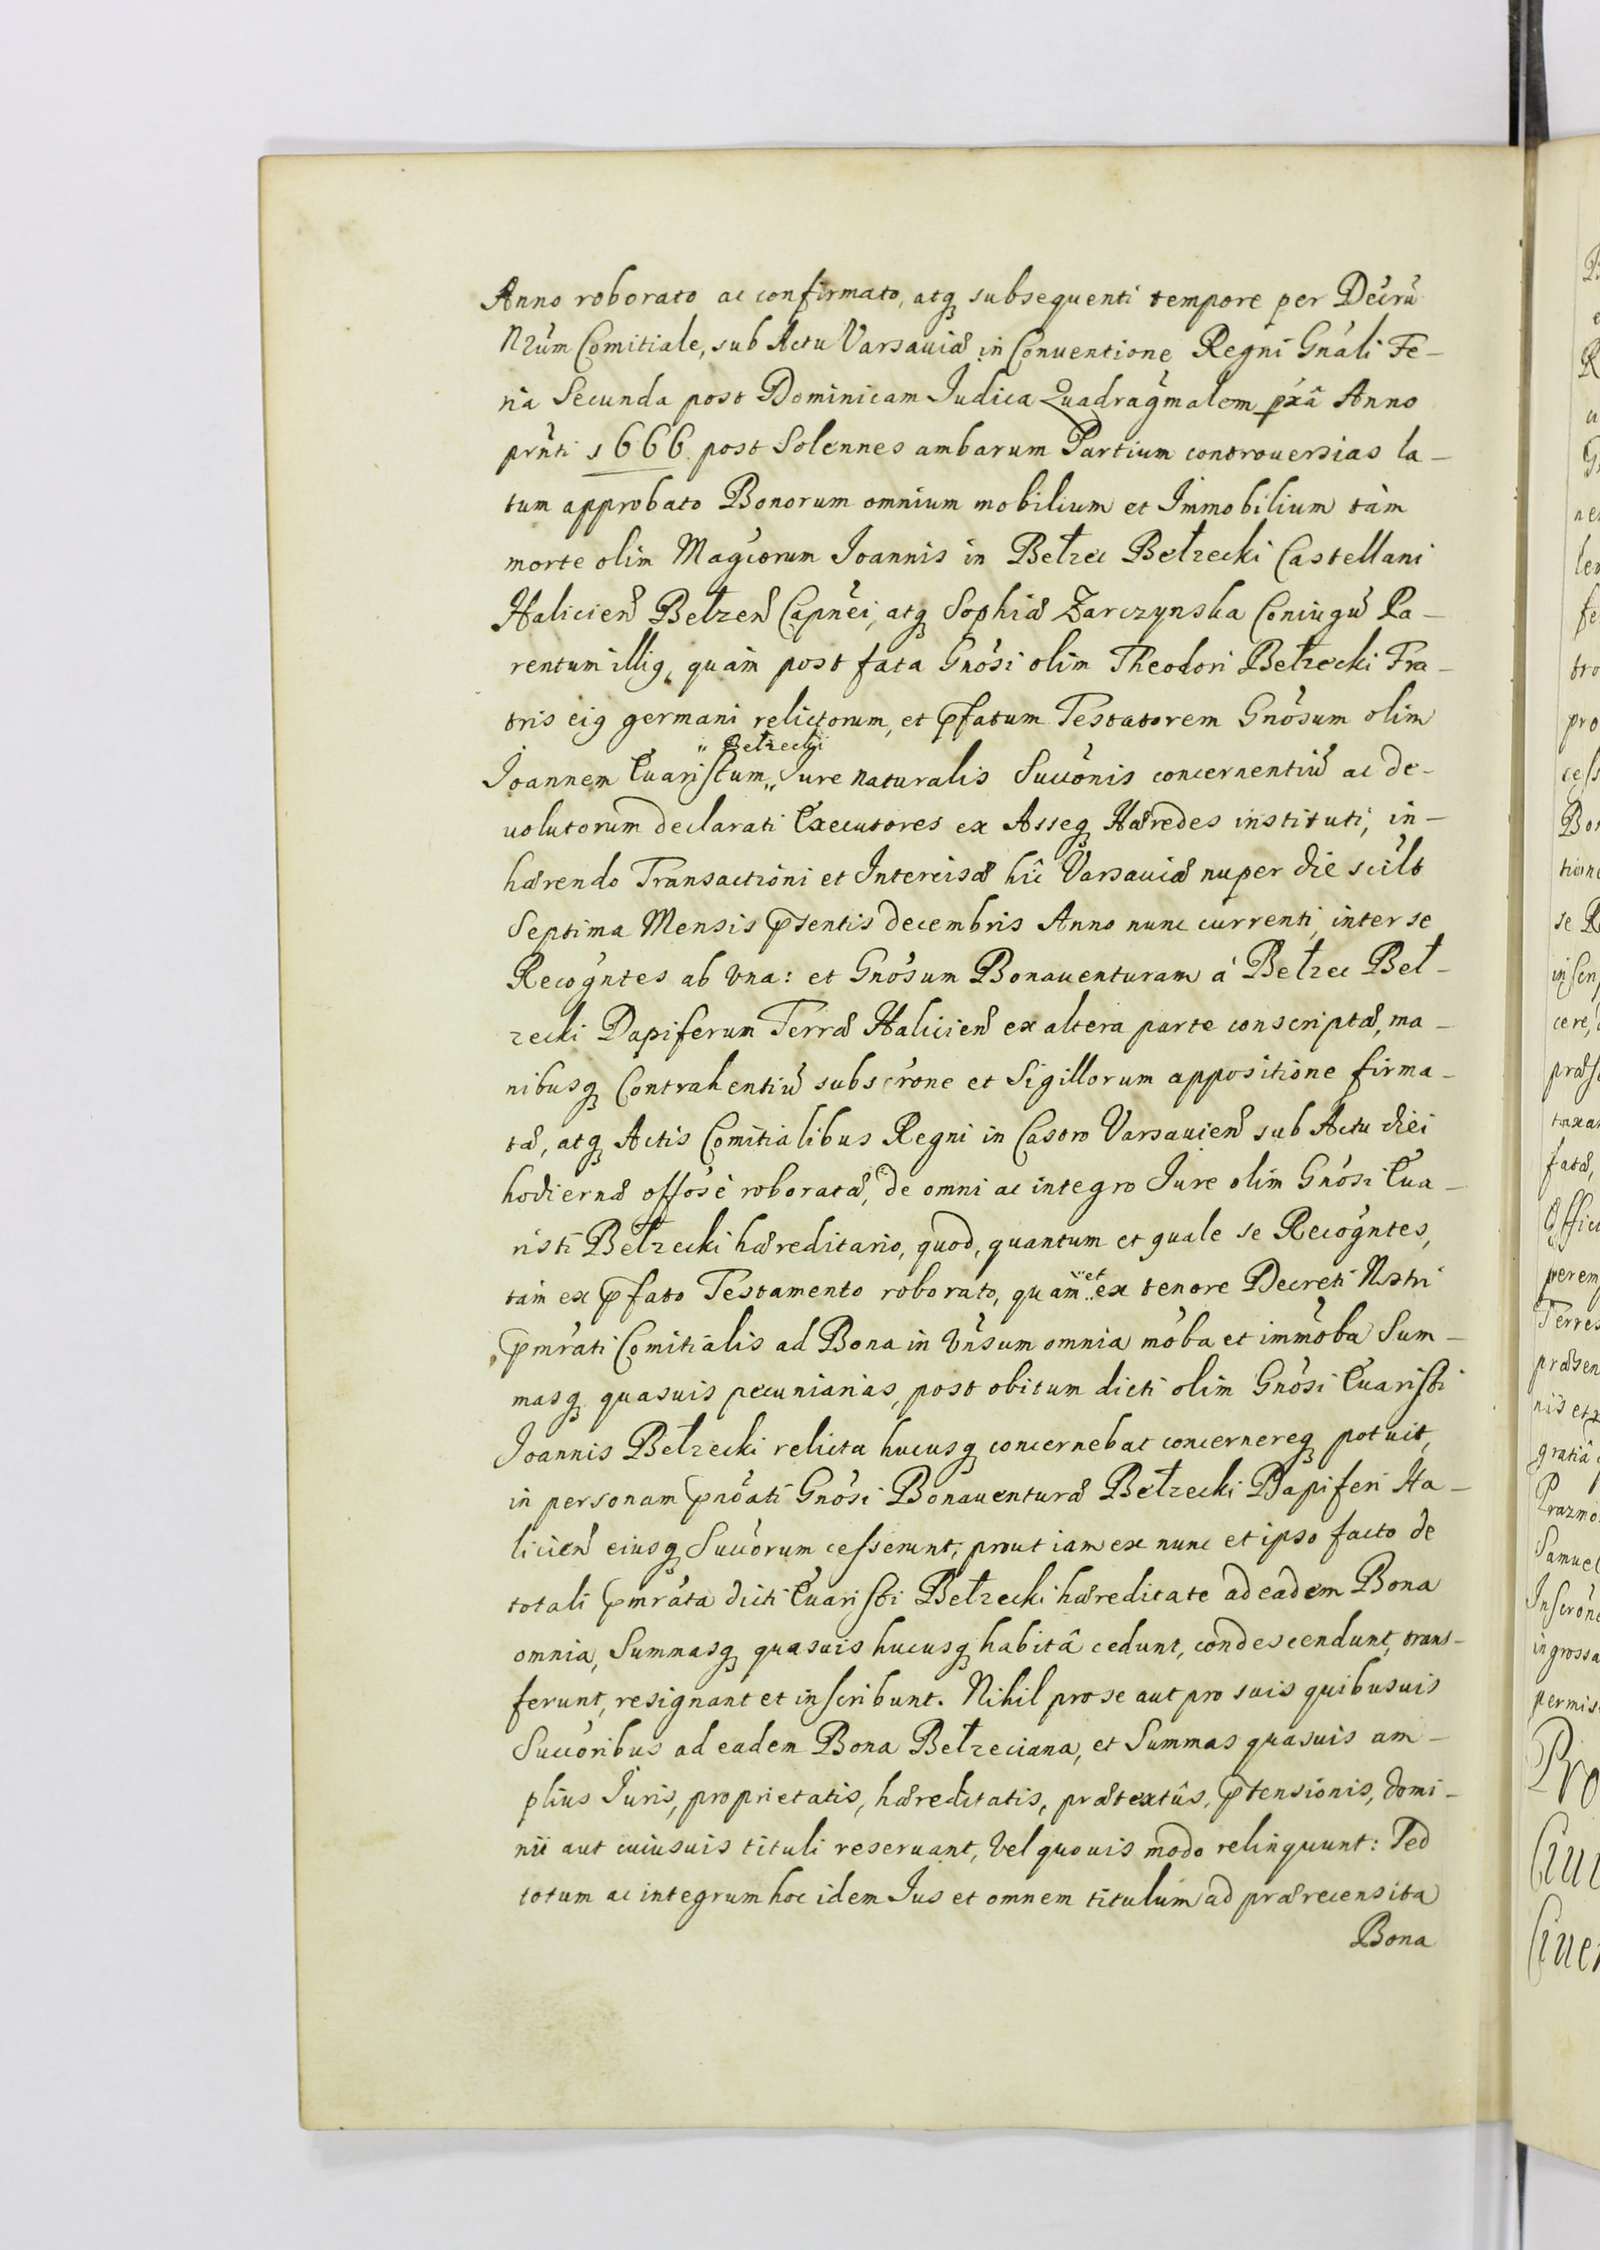 Anno roborato ac confirmato, atq́ subsequenti tempore per Decrũ
Nr̃um Comitiale, sub Actu Varsaviæ in Conventione Regni Gñali Fe-
ria Secunda post Dominicam Iudica Quadragmalem px̃â Anno
prñti 1666. post Solennes ambarum Partium controuersias la-
tum approbato Bonorum omnium mobilium et Immobilium tàm
morte olim Magcorum Ioannis in Bełzec Bełzecki Castellani
Halicień Bełzeń Capnei, atq́ Sophiæ Zarczynska Coniugũ Pa-
rentum illiq, quàm post fata Gnosi olim Theodori Bełzecki Fra-
tris eiq germani relictorum, et p̃fatum Testatorem Gnosum olim
" Bełzecki
Ioannem Euaristum„ Iure naturalis Succonis concernentiũ ac de-
uolutorum declarati Executores ex Asseq́ Hæredes instituti, in-
hærendo Transactioni et Intercisæ hîc Varsauiæ nuper die scilt
Septima Mensis p̃sentis decembris Anno nunc currenti, inter se
Recogntes ab vna: et Gnosum Bonauenturam à Bełzec Beł-
zecki Dapiferum Terræ Halicień ex altera parte conscriptæ, ma-
nibusq́ Contrahentiũ subscrone et Sigillorum appositione firma-
tæ, atq́ Actis Comitialibus Regni in Castro Varsauień sub Actu diei
hodiernæ offosè roboratæ, de omni ac integro Iure olim Gnosi Eua-
risti Bełzecki hæreditario, quod, quantum et quale se Recogntes,
"et
tàm ex p̃fato Testamento roborato, quàm„ ex tenore Decreti Nostri
p̃mrati Comitialis ad Bona in Vnsum omnia moba et immoba Sum-
masq́ quasuis pecuniarias, post obitum dicti olim Gnosi Euaristi
Ioannis Bełzecki relicta hucusq́ concernebat concernereq́ potuit,
in personam p̃noati Gnosi Bonauenturæ Bełzecki Dapiferi Ha-
licień eiusq́ Succorum cesserunt, prout iam ex nunc et ipso facto de
totali p̃mrata dicti Euaristi Bełzecki hæreditate ad eadem Bona
omnia, Summasq́ quasuis hucusq́ habitâ cedunt, condescendunt, trans-
ferunt, resignant et inscribunt. Nihil pro se aut pro suis quibusuis
Succoribus ad eadem Bona Bełzeciana, et Summas quasuis am-
plius Iuris, proprietatis, hæreditatis, prætextûs, p̃tensionis, domi-
nii aut cuiusuis tituli reseruant, vel quouis modo relinquunt: Sed
totum ac integrum hoc idem Ius et omnem titulum ad prærecensita
Bona